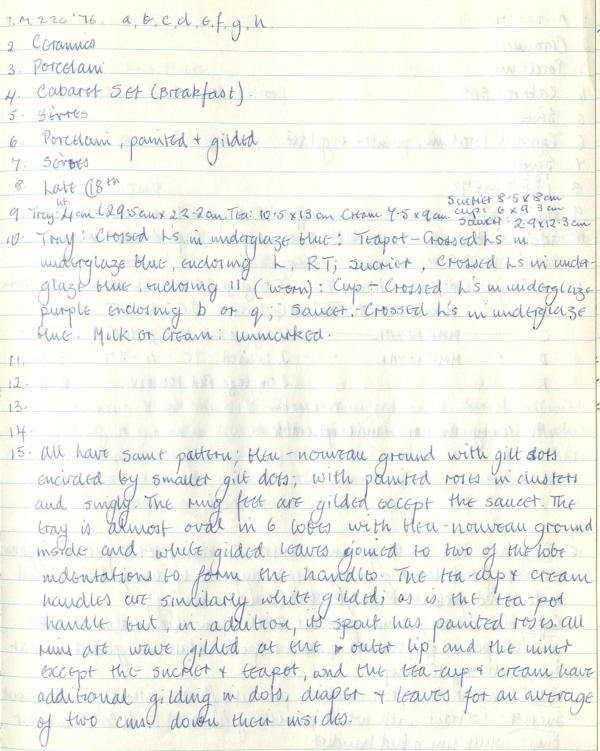 1. M 220 '76. a, b, c, d, e, f, g, h.
2 Ceramics
3. Porcelain
4. Cabaret Set (Breakfast).
5. Sèvres
6. Porcelain, painted & gilded
7. Sèvres
8. Late 18th
Sucrier 8.5 x 8cm
9. Tray: ht 4cm L29.5cm x 22.2cm Tea: 10.5 x 13cm Cream 7.5 x 9cm Cup: 6 x 9.3cm
Saucer: 2.9 x 12.3cm
10. Tray: Crossed L's in underglaze blue: Teapot - Crossed L's in
underglaze blue, enclosing L, RT; Sucrier, Crossed L's in under-
glaze blue, enclosing 11 (worn): Cup - Crossed L's in underglaze
purple enclosing b or q; Saucer - Crossed L's in underglaze
blue. Milk or Cream: unmarked.
11.
12.
13.
14.
15. All have same pattern; bleu-nouveau ground with gilt dots
encircled by smaller gilt dots; with painted roses in clusters
and singly. The ring feet are gilded except the saucer. The
tray is almost oval in 6 lobes with bleu-nouveau ground
inside and white gilded leaves joined to two of the lobe
indentations to form the handles. The tea-cup & cream
handles are similarly white gilded; as is the tea-pot
handle but, in addition, its spout has painted roses. All
rims are wave gilded at the outer lip and the inner
except the sucrier & teapot, and the tea-cup & cream have
additional gilding in dots, diaper & leaves for an average
of two cms. down their insides.